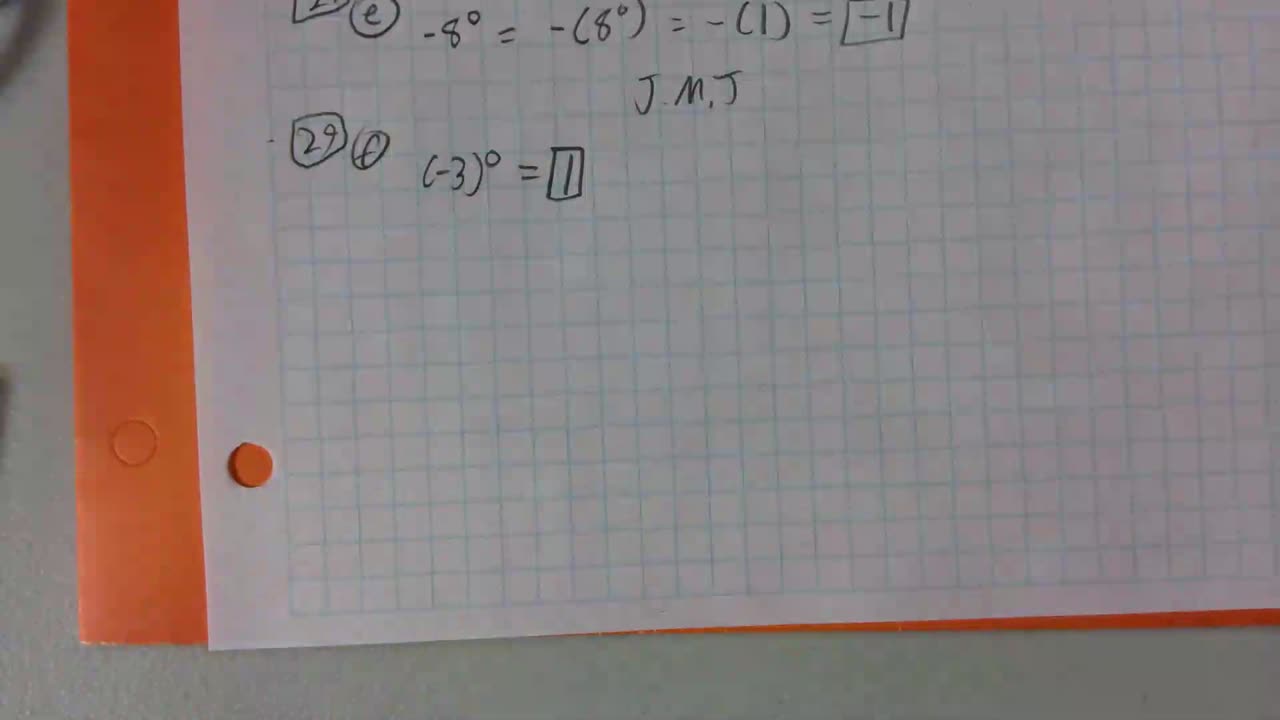 (e) -8⁰ = -(8⁰) = -(1) = -1
J.M.J
29 (f) (-3)⁰ = 1